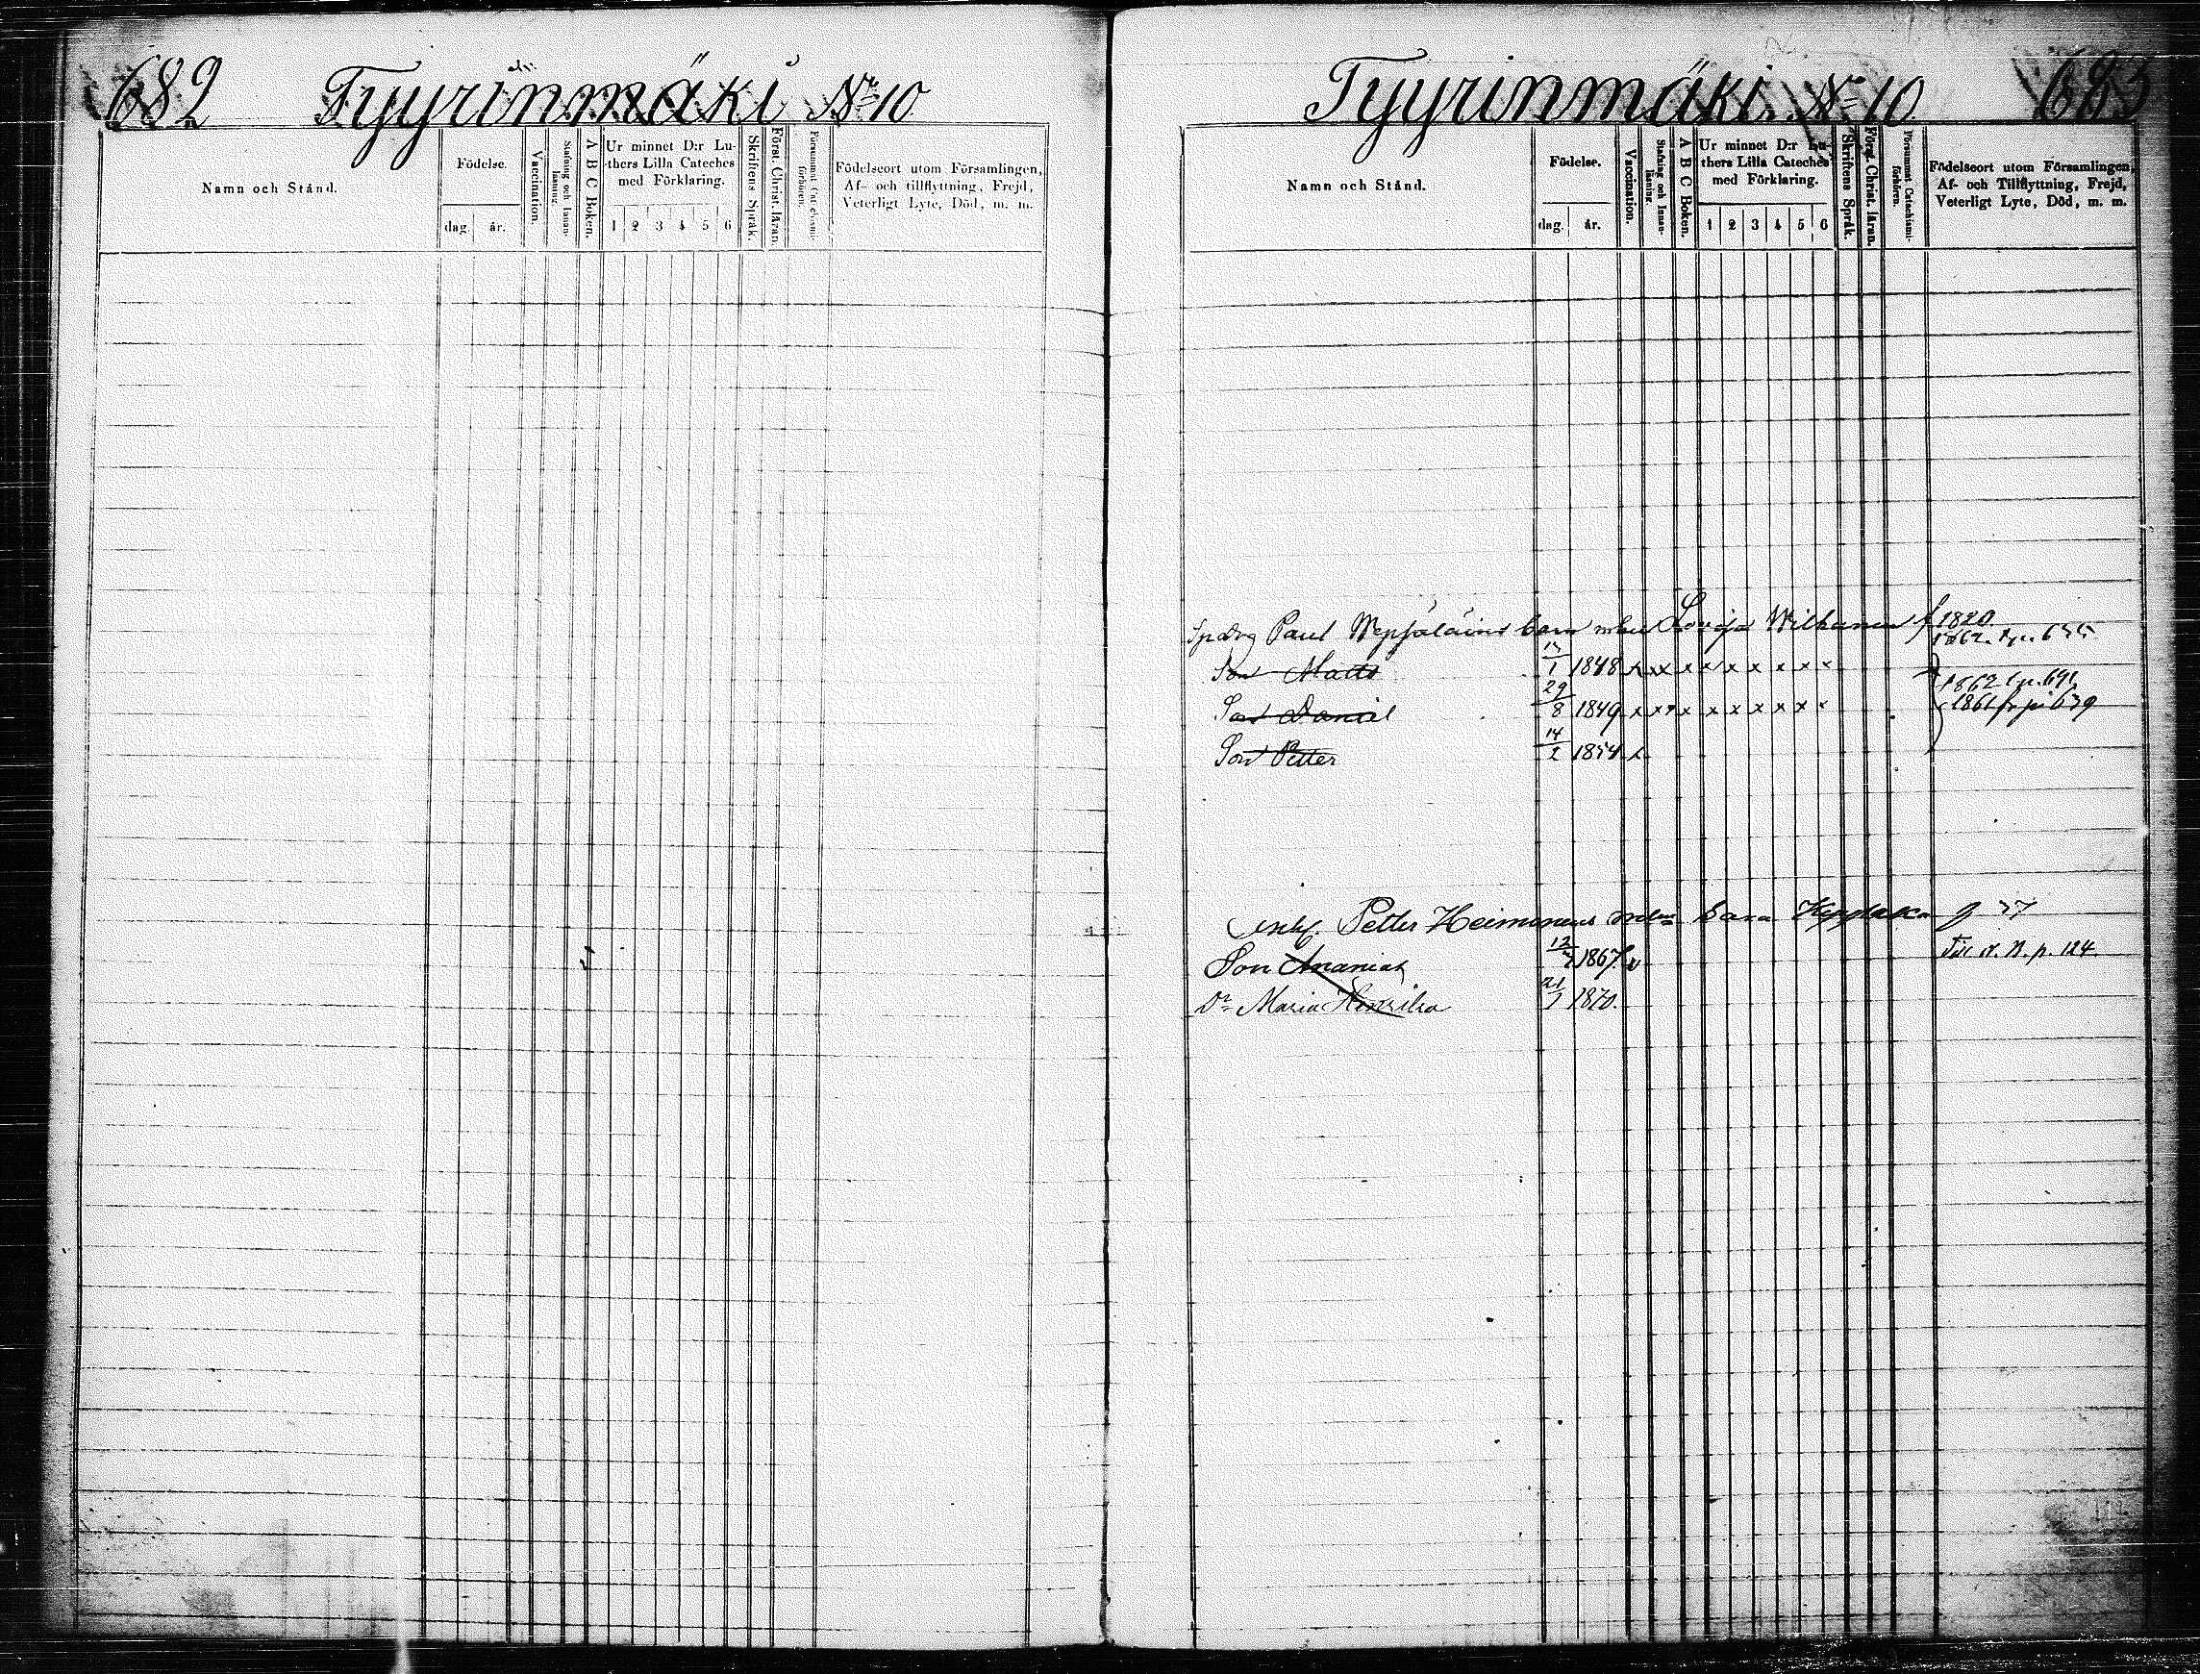 682 Tyyrinmäki No 10
Namn och Stånd.
Födelse.
dag. år.
Vaccination.
Stafning och Innanläsning.
A B C Boken.
Ur minnet D:r Lu-
thers Lilla Cateches
med Förklaring.
1 2 3 4 5 6
Skriftens Språk.
Förstånd Christ. läran.
Försummat Catechismi-
förhören.
Födelseort utom Församlingen,
Af- och tillflyttning, Frejd,
Veterligt Lyte, Död, m. m.
Tyyrinmäki No 10. 683
Namn och Stånd.
Födelse.
dag. år.
Vaccination.
Stafning och Innan-
läsning.
A B C Boken.
Ur minnet D:r Lu-
thers Lilla Cateches
med Förklaring.
1 2 3 4 5 6
Skriftens Språk.
Först. Christ. läran.
Försummat Catechismi-
förhören.
Födelseort utom Församlingen,
Af- och Tillflyttning, Frejd,
Veterligt Lyte, Död, m. m.
Paul barn Lovisa Wilhanen f 1820.
Son Matts 1 1848 x x x x x x x x x 1862 p. 691
Son Daniel 29/8 1849 x x x x x x x x x 1861 639
Son Petter 14/2 1854 x
Petter Heimonens
Son Ananias 12 1867 Till p. 124.
Dr Maria Henrika 21 1870.